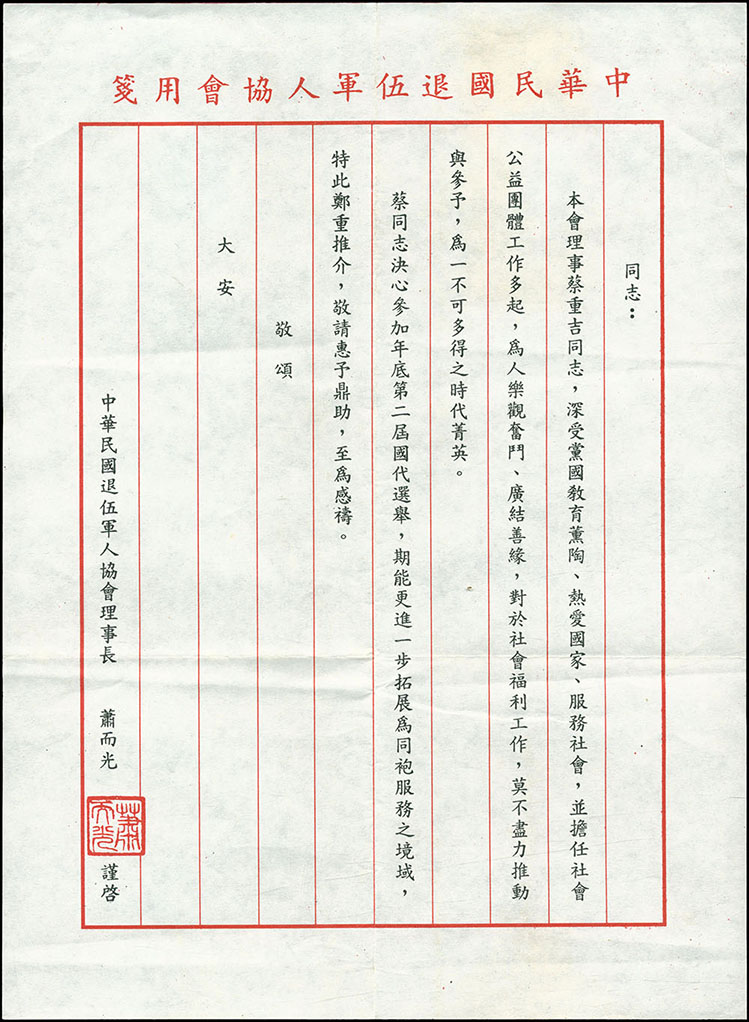 中華民國退伍軍人協會用箋
同志：
本會理事蔡重吉同志，深受黨國教育薰陶、熱愛國家、服務社會，並擔任社會
公益團體工作多起，為人樂觀奮鬥、廣結善緣，對於社會福利工作，莫不盡力推動
與參予，為一不可多得之時代菁英。
蔡同志決心參加年底第二屆國代選舉，期能更進一步拓展為同袍服務之境域，
特此鄭重推介，敬請惠予鼎助，至為感禱。
敬頌
大安
中華民國退伍軍人協會理事長 蕭而光 謹啓
蕭而光